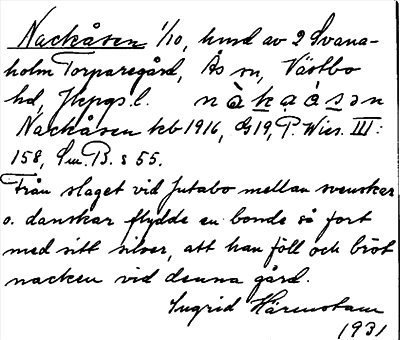 Nackåsen 1/10, hmd av 2 Svana-
holm Torparegård, Ås sn, Västbo
hd, Jkpgs. l. nàkaåsən
Nackåsen kb 1916, G19, P. Wies. III:
158, Sm. B. s 55.
Från slaget vid Jutabo mellan svenskar
o. danskar flydde en bonde så fort
med sitt silver, att han föll och bröt
nacken vid denna gård.
Ingrid Härenstam
1931